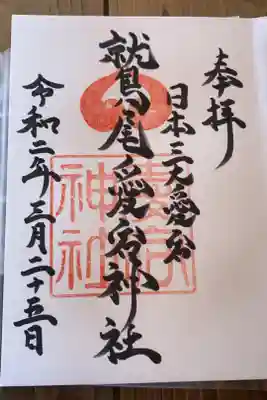 奉拝
日本三大愛宕
鷲尾愛宕神社
愛宕
神社
令和二年三月二十五日